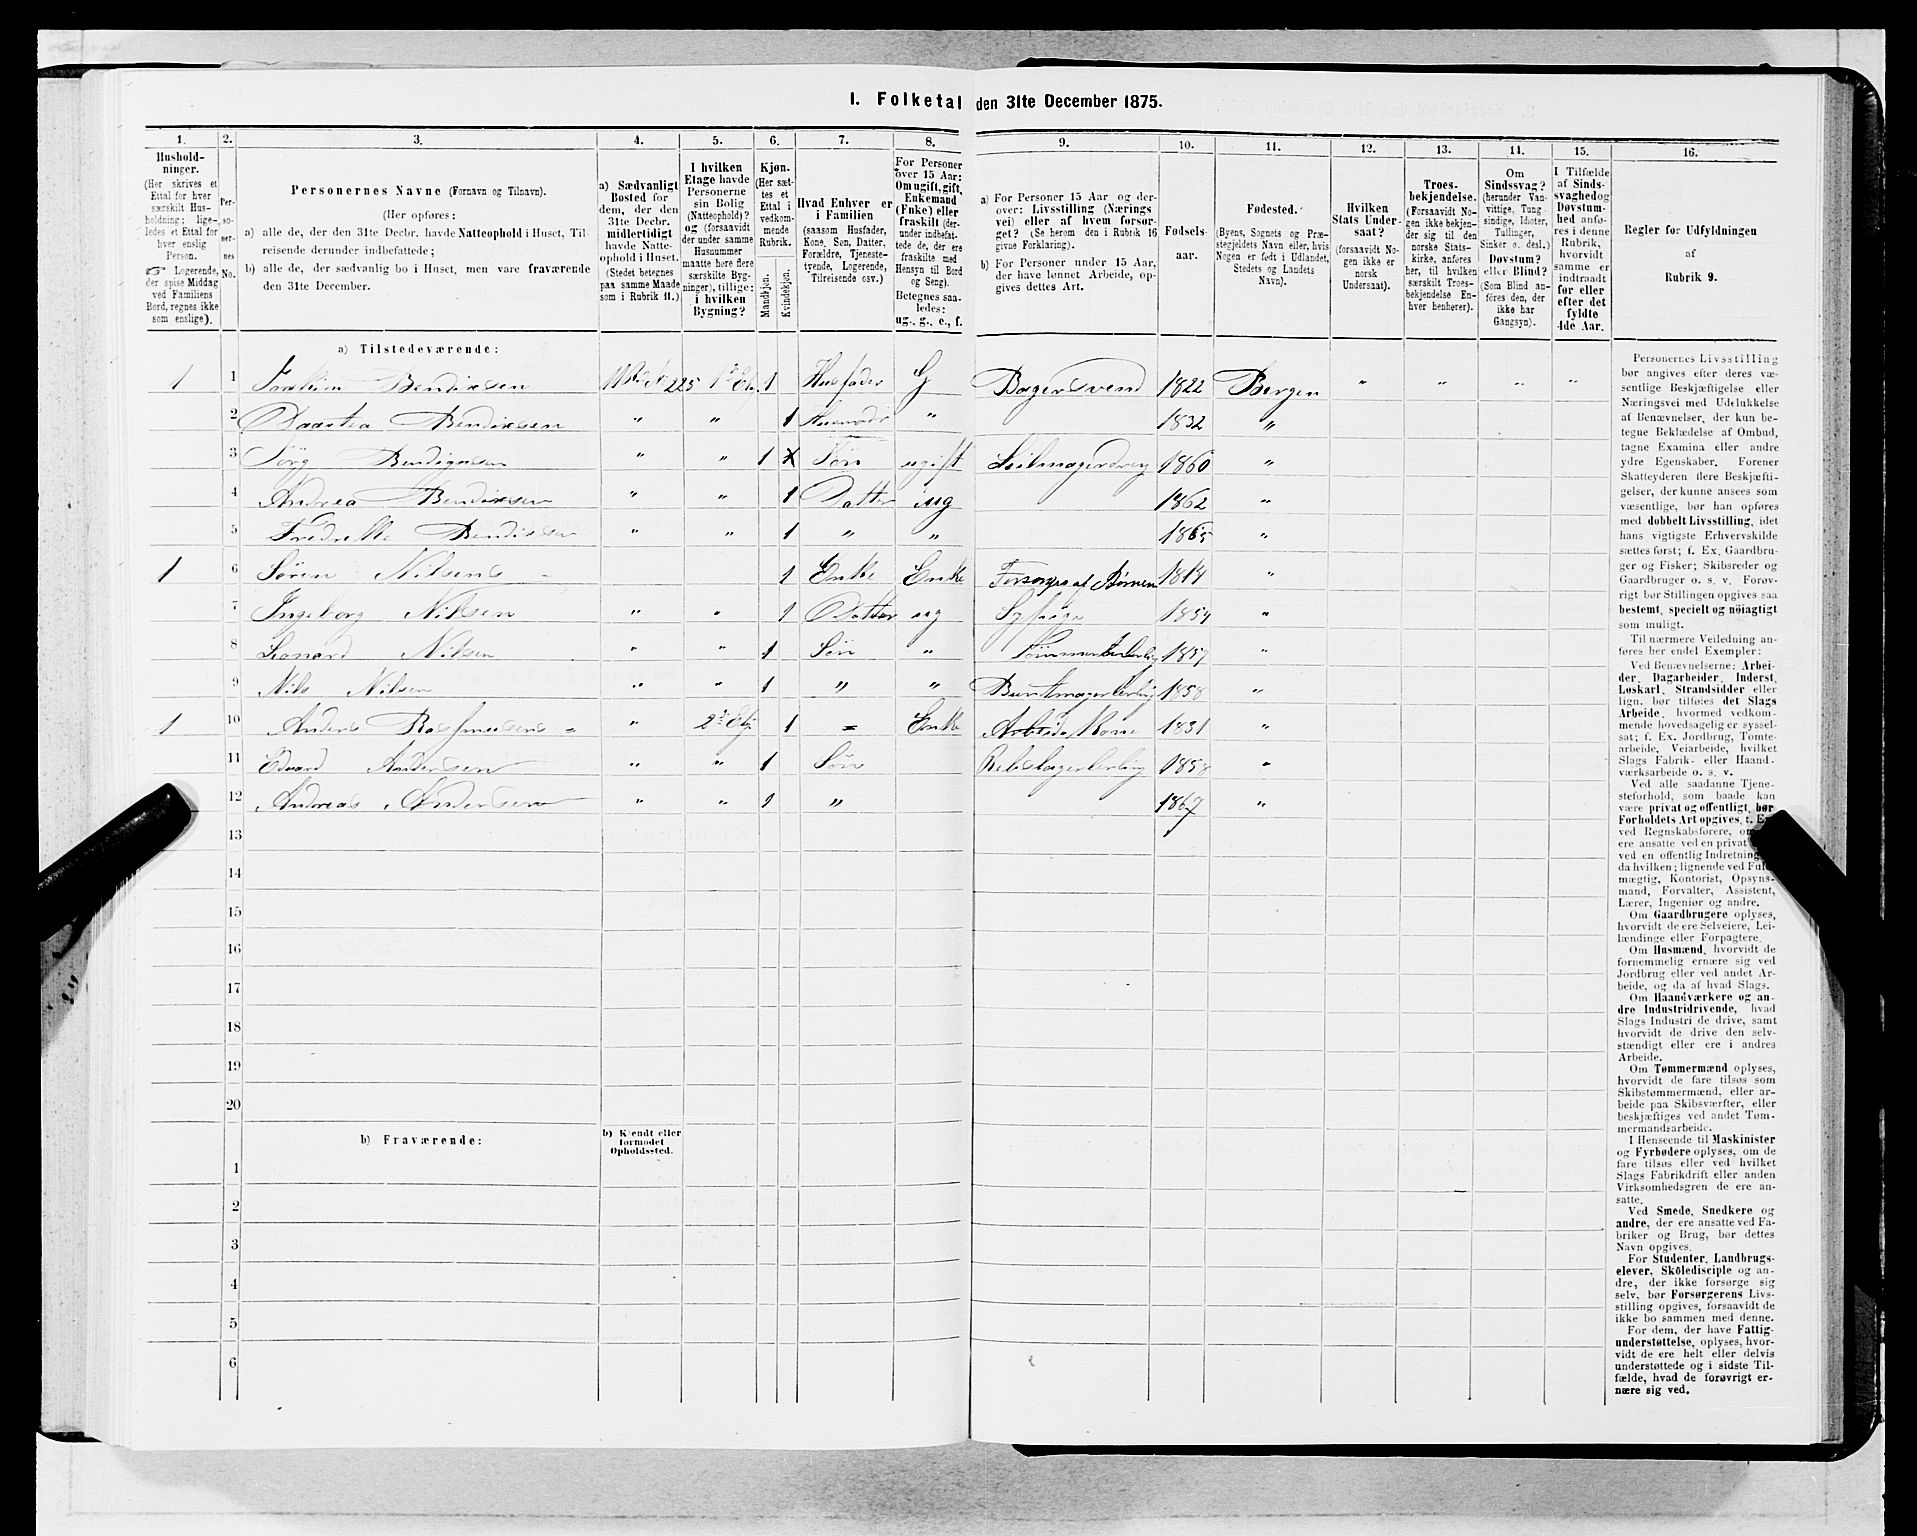 1. Folketal den 31te December 1875.
1. 2. 3. 4. 5. 6. 7. 8. 9. 10. 11. 12. 13. 14. 15. 16.
Hushold-
ninger.
(Her skrives et
Ettal for hver
særskilt Hus-
holdning; lige-
ledes et Ettal for
hver enslig
Person.
☞ Logerende,
der spise Middag
ved Familiens
Bord, regnes ikke
som enslige).
Per-
so-
ner-
nes
No.
Personernes Navne (Fornavn og Tilnavn).
(Her opføres:
a) alle de, der den 31te Decbr. havde Natteophold i Huset, Til-
reisende derunder indbefattede;
b) alle de, der sædvanlig bo i Huset, men vare fraværende
den 31te December.
a) Sædvanligt
Bosted for
dem, der den
31te Decbr.
midlertidigt
havde Natte-
ophold i Huset.
(Stedet betegnes
paa samme Maade
som i Rubrik 11.)
I hvilken
Etage havde
Personerne
sin Bolig
(Natteophold)?
og (forsaavidt
der under samme
Husnummer
maatte høre flere
særskilte Byg-
ninger), tillige:
i hvilken
Bygning?
Kjøn.
(Her sæt-
tes et
Ettal i
vedkom-
mende
Rubrik.
Mandkjøn.
Kvindekjøn.
Hvad Enhver er
i Familien
(saasom Husfader,
Kone, Søn, Datter,
Forældre, Tjeneste-
tyende, Logerende,
Tilreisende osv.)
For Personer
over 15 Aar:
Om ugift, gift,
Enkemand
(Enke) eller
fraskilt (der-
under indbefat-
tede de, der ere
fraskilte med
Hensyn til Bord
og Seng).
Betegnes saa-
ledes:
ug., g., e., f.
a) For Personer 15 Aar og der-
over: Livsstilling (Nærings
vei) eller af hvem forsør-
get? (Se herom den i Rubrik 16
givne Forklaring).
b) For Personer under 15 Aar,
der have lønnet Arbeide, op-
gives dettes Art.
Fødsels-
aar.
Fødested.
(Byens, Sognets og Præ-
stegjeldets Navn eller, hvis
Nogen er født i Udlandet,
Stedets og Landets
Navn).
Hvilken
Stats Under-
saat?
(forsaavidt No-
gen ikke er
norsk
Undersaat).
Troes-
bekjendelse.
(Forsaavidt No-
gen ikke bekjen-
der sig til den
norske Stats-
kirke, anføres
her, til hvilken
særskilt Troes-
bekjendelse En-
hver henhører).
Om
Sindssvag?
(herunder Van-
vittige, Tung-
sindige, Idioter,
Tullinger,
Sinker o. desl.)
Døvstum?
eller Blind?
(Som Blind an-
føres den, der
ikke har
Gangsyn).
I Tilfælde
af Sinds-
svaghed og
Døvstum-
hed anfø-
res i denne
Rubrik,
hvorvidt
samme er
indtraadt
før eller
efter det
fyldte
4de Aar.
Regler for Udfyldningen
af
Rubrik 9.
a) Tilstedeværende:
1 1 Bendixsen 225 1 Husfader G Bagersvend 1822 Bergen " " " "
2 Bendixsen " " 1 Husmoder " 1832 "
3 " " 1 Søn ugift 1860 "
4 Andrea Bendixsen " " 1 Datter ug 1862 "
5 Bendixsen " " 1 " " 1865 "
1 6 Søren Nilsens 1 Enke Enke Forsørges af Børnene 1814 "
7 Ingeborg Nilsen " " 1 Datter ug Sypige 1854 "
8 Leonard Nilsen " " 1 Søn " 1857 "
9 Nils Nilsen " " 1 " " Buntmagerlerling 1858 "
1 10 Anders Rasmusens = " 2 Etg 1 = Enke Arbeids Kone 1831 "
11 Edvard Andersen " " 1 Søn Rebslagerlerling 1858 "
12 Andreas Andersen " " 1 " 1867 "
13
14
15
16
17
18
19
20
b) Fraværende:
b) Kjendt eller
formodet
Opholdssted.
1
2
3
4
5
6
Personernes Livsstilling
bør angives efter deres væ-
sentlige Beskjæftigelse eller
Næringsvei med Udelukkelse
af Benævnelser, der kun be-
tegne Beklædelse af Ombud,
tagne Examina eller andre
ydre Egenskaber. Forener
Skatteyderen flere Beskjæfti-
gelser, der kunne ansees som
væsentlige, bør han opføres
med dobbelt Livsstilling, idet
hans vigtigste Erhvervskilde
sættes først; f. Ex. Gaardbru-
ger og Fisker; Skibsreder og
Gaardbruger o. s. v. Forøv-
rigt bør Stillingen opgives saa
bestemt, specielt og nøiagtigt
som muligt.
Til nærmere Veiledning an-
føres her endel Exempler:
Ved Benævnelserne: Arbei-
der, Dagarbeider, Inderst,
Løskarl, Strandsidder eller
lign. bør tilføies det Slags
Arbeide, hvormed vedkom-
mende hovedsagelig er syssel-
sat; f. Ex. Jordbrug, Tomte-
arbeide, Veiarbeide, hvilket
Slags Fabrik- eller Haand-
værksarbeide o. s. v.
Ved alle saadanne Tjene-
steforhold, som baade kan
være privat og offentligt, bør
Forholdets Art opgives, f. Ex.
ved Regnskabsførere, om de
ere ansatte ved en privat eller
ved en offentlig Indretning og
da hvilken; lignende ved Fuld-
mægtig, Kontorist, Opsyns-
mand, Forvalter, Assistent,
Lærer, Ingeniør og andre.
Om Gaardbrugere oplyses,
hvorvidt de ere Selveiere, Lei-
lændinge eller Forpagtere.
Om Husmænd, hvorvidt de
fornemmelig ernære sig ved
Jordbrug eller ved andet Ar-
beide, og da af hvad Slags.
Om Haandværkere og an-
dre Industridrivende, hvad
Slags Industri de drive, samt
hvorvidt de drive den selv-
stændigt eller ere i andres
Arbeide.
Om Tømmermænd oplyses,
hvorvidt de fare tilsøs som
Skibstømmermænd, eller ar-
beide paa Skibsværfter, eller
beskjæftiges ved andet Tøm-
mermandsarbeide.
I Henseende til Maskinister
og Fyrbødere oplyses, om de
fare tilsøs eller ved hvilket
Slags Fabrikdrift eller anden
Virksomhedsgren de ere an-
satte.
Ved Smede, Snedkere og
andre, der ere ansatte ved Fa-
briker og Brug, bør dettes
Navn opgives.
For Studenter, Landbrugs-
elever, Skoledisciple og an-
dre, der ikke forsørge sig
selv, bør Forsørgerens Livs-
stilling opgives, forsaavidt de
ikke bo sammen med denne.
For dem, der have Fattig-
understøttelse, oplyses, hvor-
vidt de ere helt eller delvis
understøttede og i sidste Til-
fælde, hvad de forøvrigt er-
nære sig ved.